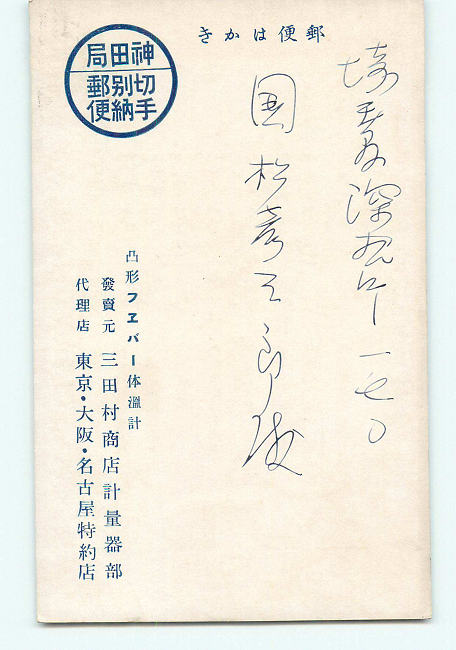 郵便はかき
埼玉県深谷市一七〇
国松 郎様
神田局
切手
別納
郵便
凸形フヱバー体溫計
發賣元 三田村商店計量器部
代理店 東京・大阪・名古屋特約店